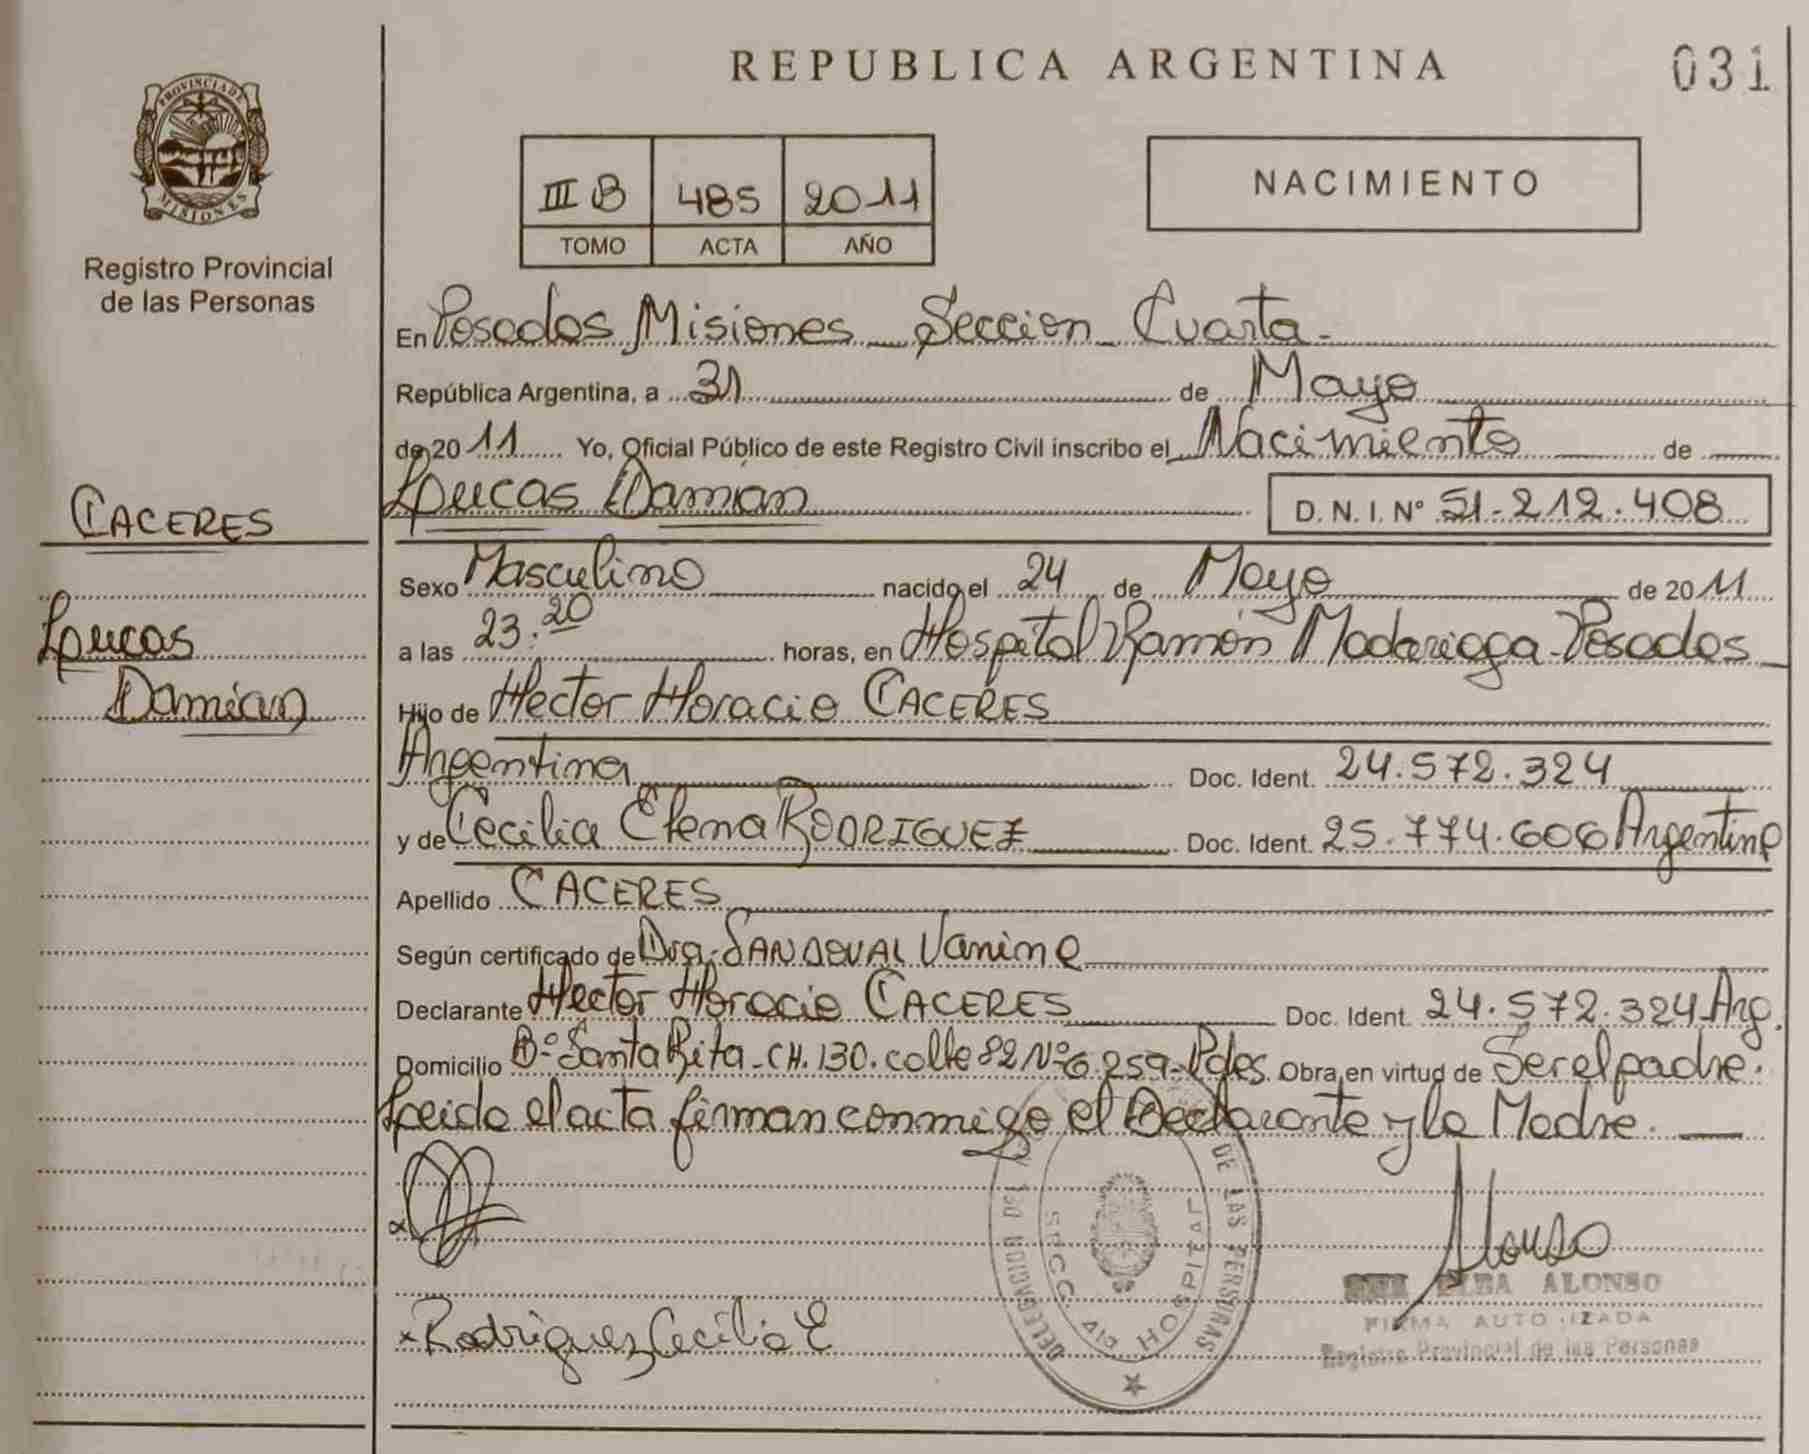 REPUBLICA ARGENTINA
031
PROVINCIA DE MISIONES
Registro Provincial
de las Personas
III B 485 2011
TOMO ACTA AÑO
NACIMIENTO
En Posadas Misiones - Seccion - Cuarta -
República Argentina, a 31 de Mayo
de 2011 Yo, Oficial Público de este Registro Civil inscribo el Nacimiento de
CACERES
Lucas Damian
Lucas Damian D.N.I. Nº 51.212.408
Sexo Masculino nacido el 24 de Mayo de 2011
a las 23:20 horas, en Hospital Ramón Madariaga - Posadas
Hijo de Hector Horacio CACERES
Argentina Doc. Ident. 24.572.324
y de Cecilia Elena RODRIGUEZ Doc. Ident. 25.774.606 Argentina
Apellido CACERES
Según certificado de Dra. SANDOVAL Vanina
Declarante Hector Horacio CACERES Doc. Ident. 24.572.324 Arg.
Domicilio Bº Santa Rita - CH. 130. calle 82 Nº 6259 - Pdas. Obra en virtud de Ser el padre.
Leida el acta firman conmigo el Declarante y la Madre.
DE LAS PERSONAS
SECC. 4ta HOSPITAL
Alonso
ELBA ALONSO
FIRMA AUTORIZADA
Registro Provincial de las Personas
x Rodriguez Cecilia E